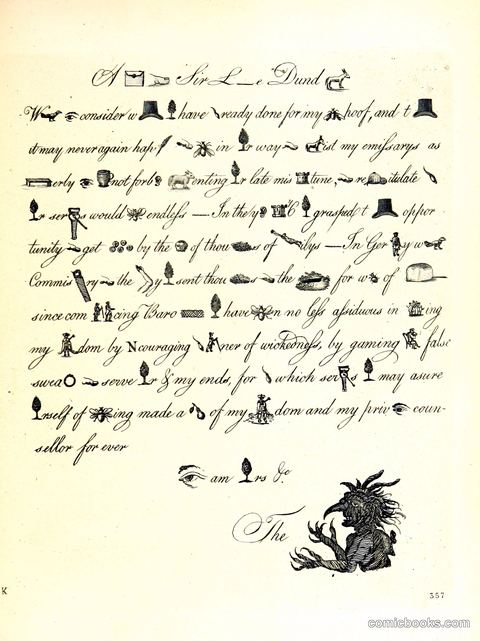 A Sir L__e Dund
W consider w have ready done for my hoof, and t
it may never again hap. in r way ist my emissarys as
erby not forb enting r late mis tune, re itulate
r ser would endless — In the y 6 grasped t oppor
tunity get by the of thou s of ilys — In Ger y w
Commis ry the y sent thou s the for w of
since com cing Baro have n no less assiduous in ing
my dom by Ncouraging ner of wickedness, by gaming false
swea serve r & my ends, for which ser s may asure
rself of ing made a of my dom and my priv coun-
sellor for ever
am rs &c
The
K
357
comicbooks.com